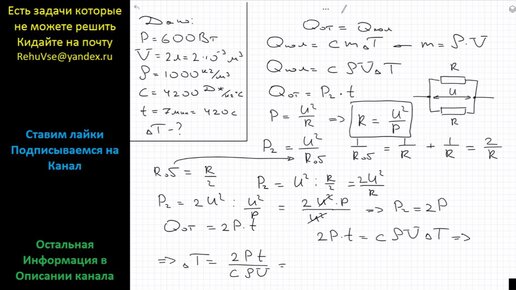 Есть задачи которые
не можете решить
Кидайте на почту
RehuVse@yandex.ru
Ставим лайки
Подписываемся на
Канал
Остальная
Информация в
Описании канала
Дано:
P = 600 Вт
V = 2 л = 2·10⁻³ м³
ρ = 1000 кг/м³
c = 4200 Дж/кг°С
t = 7 мин = 420 с
ΔT - ?
Qот = Qпол
Qпол = c m ΔT — m = ρ·V
Qпол = c ρ V ΔT
Qот = P₂ · t
P = U²/R => R = U²/P
R
U
R
P₂ = U²/Rоб 1/Rоб = 1/R + 1/R = 2/R
Rоб = R/2
P₂ = U² : R/2 = 2U²/R
P₂ = 2U² : U²/P = 2U²·P/U² => P₂ = 2P
Qот = 2P·t
2P·t = c ρ V ΔT =>
=> ΔT = 2Pt/cρV =